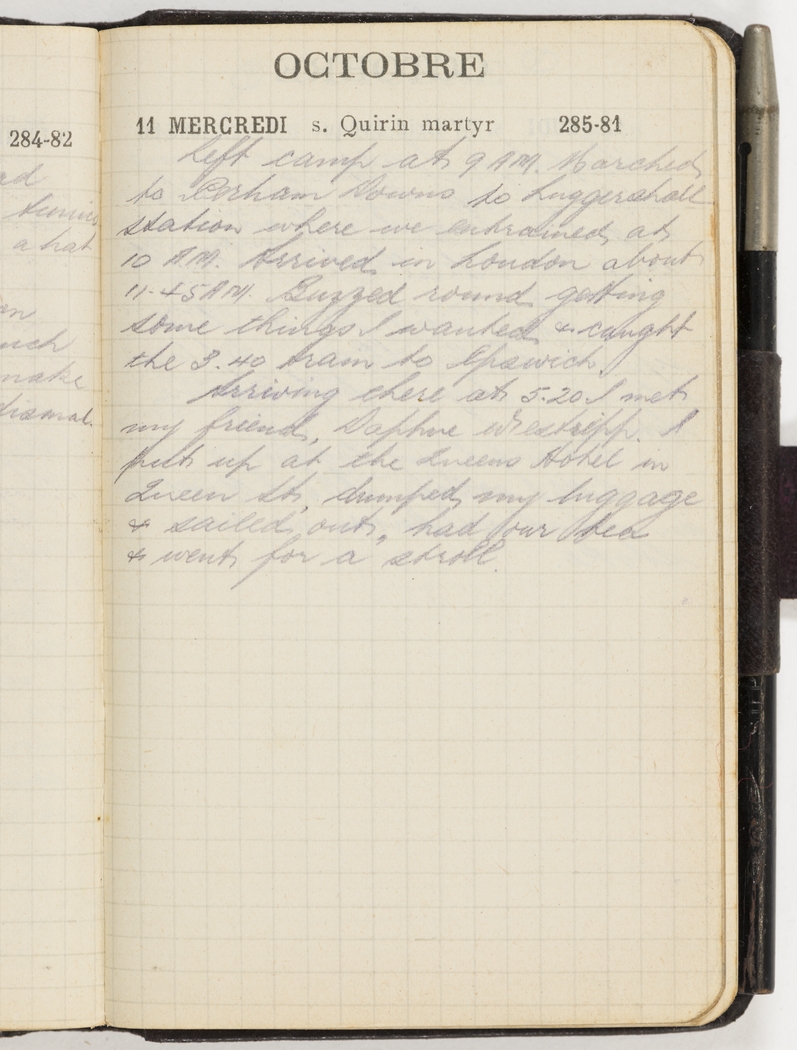 284-82
ad
a hat
en
make
dismal.
OCTOBRE
11 MERCREDI s. Quirin martyr 285-81
Left camp at 9 AM. Marched
to Perham Downs to Luggershall
station where we entrained at
10 AM. Arrived in London about
11-45 AM. Buzzed round getting
some things I wanted & caught
the 3.40 tram to Ipswich.
Arriving there at 5.20 I met
my friend, Daphne Westripp. I
put up at the Queens Hotel in
Queen St, dumped my luggage
& sailed out, had our tea
& went for a stroll.